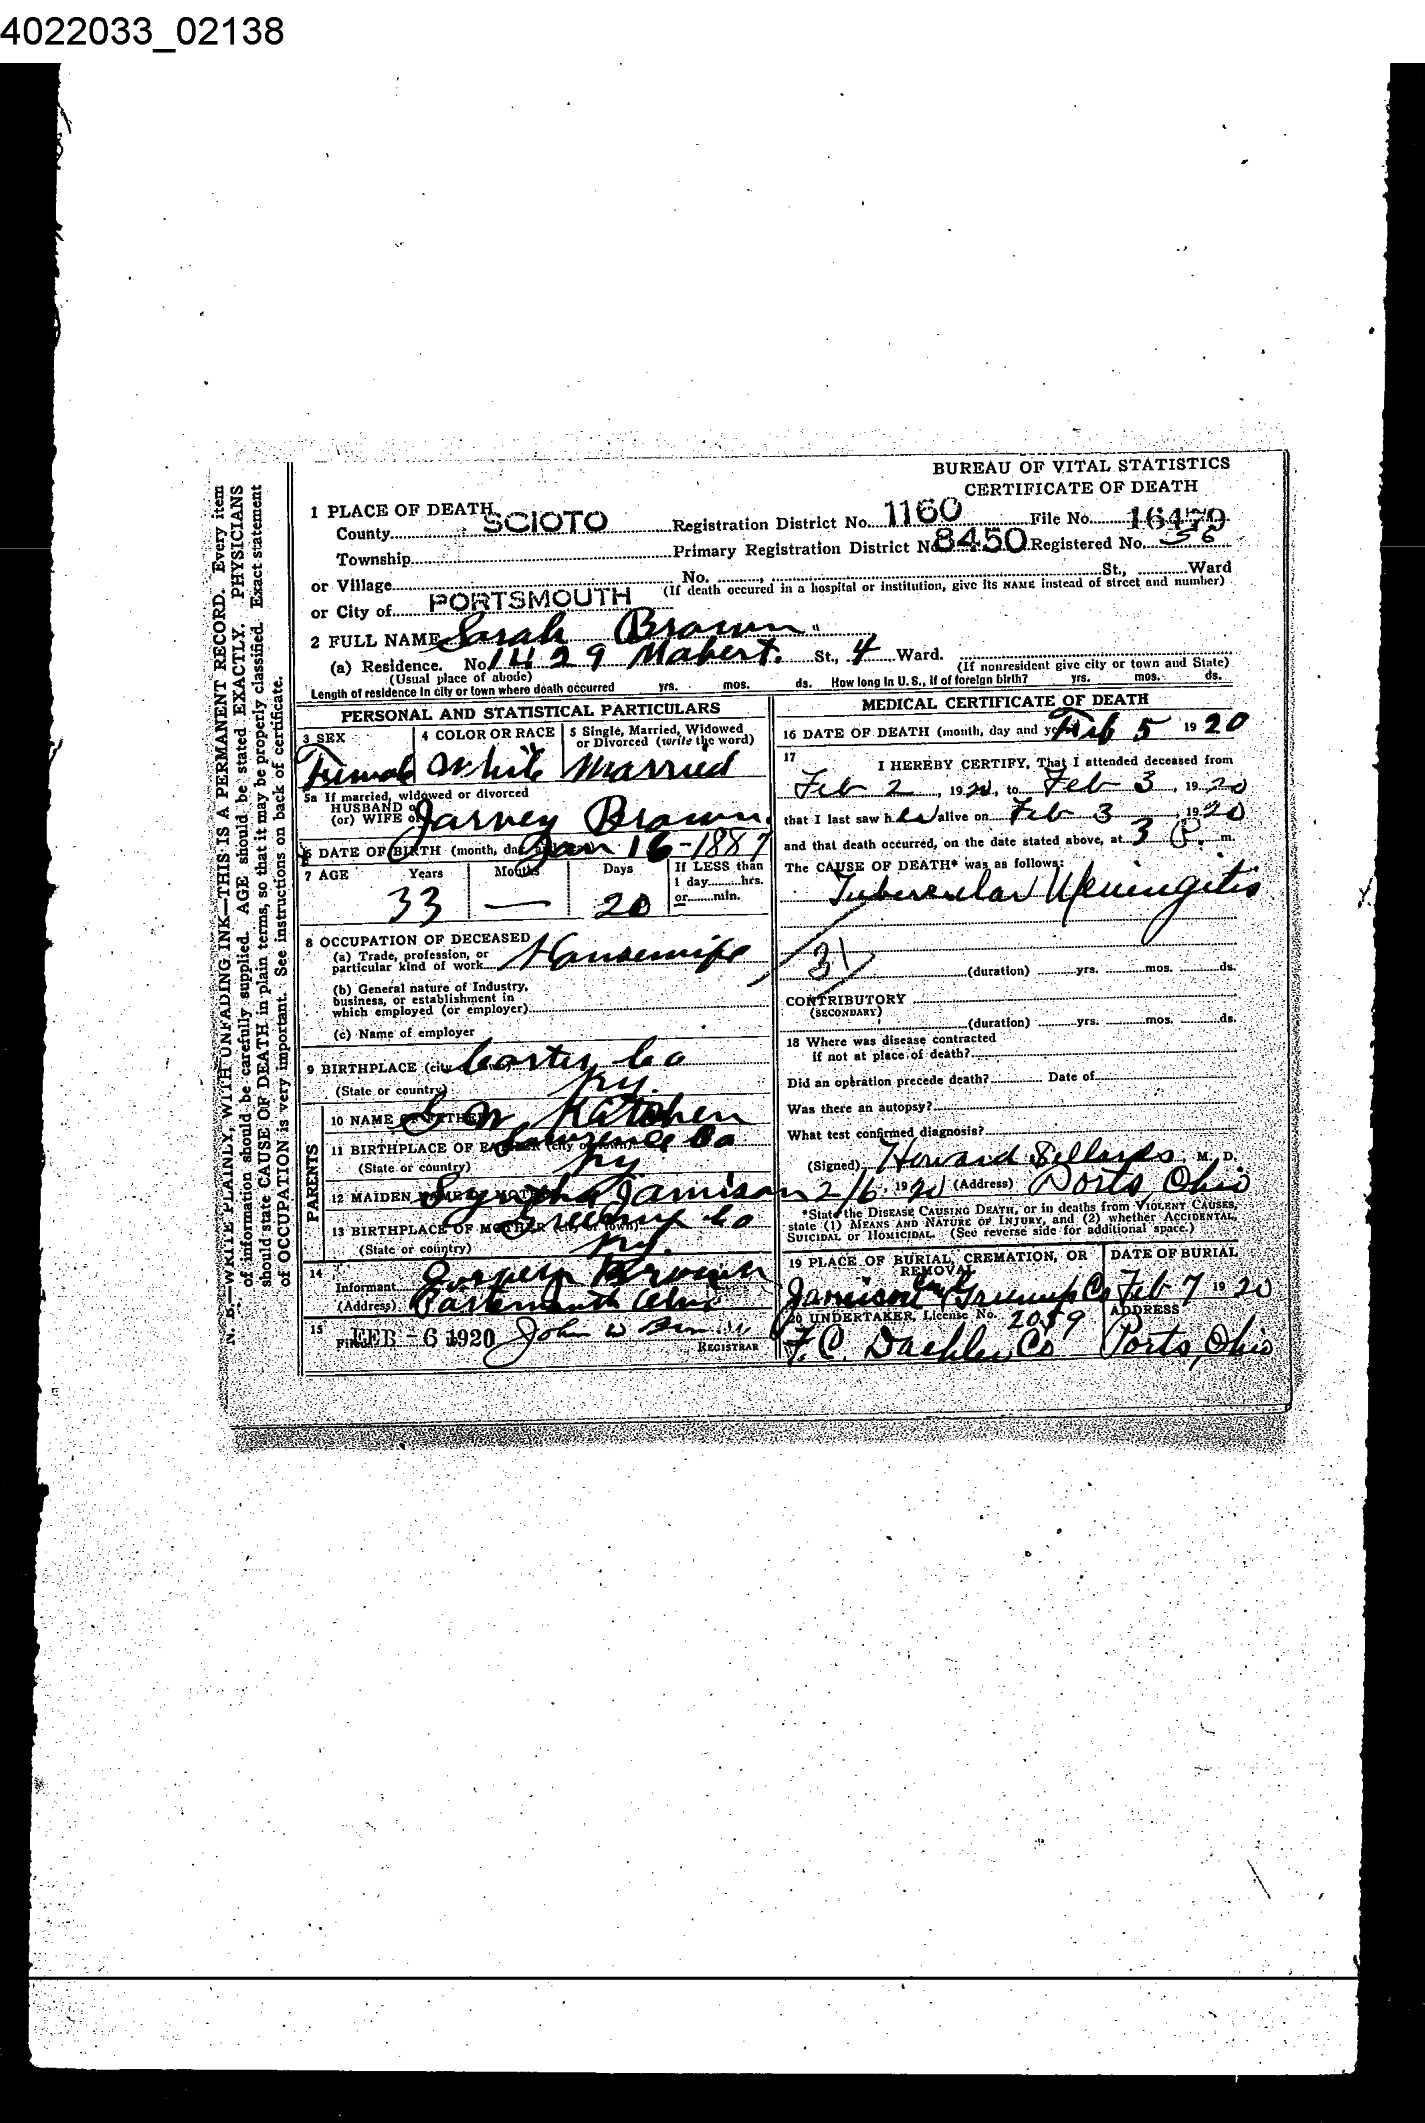 4022033_02138
BUREAU OF VITAL STATISTICS
CERTIFICATE OF DEATH
1 PLACE OF DEATH
County SCIOTO Registration District No. 1160 File No. 16479
Township Primary Registration District No. 8450 Registered No. 56
or Village No. St., Ward
(If death occured in a hospital or institution, give its NAME instead of street and number)
or City of PORTSMOUTH
2 FULL NAME Sarah Brown
(a) Residence. No. 1429 Mabert. St., 4 Ward.
(Usual place of abode) (If nonresident give city or town and State)
Length of residence in city or town where death occurred yrs. mos. ds. How long in U. S., if of foreign birth? yrs. mos. ds.
PERSONAL AND STATISTICAL PARTICULARS
3 SEX 4 COLOR OR RACE 5 Single, Married, Widowed
or Divorced (write the word)
Female White Married
5a If married, widowed or divorced
HUSBAND of
(or) WIFE of Jarvey Brown
6 DATE OF BIRTH (month, day Jan 16-1887
7 AGE Years Months Days If LESS than
1 day hrs.
or min.
33 — 20
8 OCCUPATION OF DECEASED
(a) Trade, profession, or
particular kind of work Housewife
(b) General nature of Industry,
business, or establishment in
which employed (or employer)
(c) Name of employer
9 BIRTHPLACE (city Carter Co
(State or country) Ky.
PARENTS
10 NAME OF FATHER Katchen
11 BIRTHPLACE OF FATHER (city or town) Lawrence Co
(State or country) Ky
12 MAIDEN NAME OF MOTHER Jamison
13 BIRTHPLACE OF MOTHER (city or town) Greenup Co
(State or country) Ky.
14
Informant Brown
(Address)
15 Filed FEB -6 1920 John W
REGISTRAR
MEDICAL CERTIFICATE OF DEATH
16 DATE OF DEATH (month, day and year) Feb 5 1920
17 I HEREBY CERTIFY, That I attended deceased from
Feb 2, 1920, to Feb 3, 1920
that I last saw her alive on Feb 3, 1920
and that death occurred, on the date stated above, at 3 P. m.
The CAUSE OF DEATH* was as follows:
Tubercular Meningitis
31
(duration) yrs. mos. ds.
CONTRIBUTORY
(SECONDARY)
(duration) yrs. mos. ds.
18 Where was disease contracted
if not at place of death?
Did an operation precede death? Date of
Was there an autopsy?
What test confirmed diagnosis?
(Signed) Howard Sellards, M. D.
2/6 1920 (Address) Ports, Ohio
*State the DISEASE CAUSING DEATH, or in deaths from VIOLENT CAUSES,
state (1) MEANS AND NATURE OF INJURY, and (2) whether ACCIDENTAL,
SUICIDAL or HOMICIDAL. (See reverse side for additional space.)
19 PLACE OF BURIAL, CREMATION, OR REMOVAL DATE OF BURIAL
Jamison Greenup Co Feb 7 1920
20 UNDERTAKER, License No. 2059 ADDRESS
F. C. Daehler Co Ports, Ohio
N. B.—WRITE PLAINLY, WITH UNFADING INK—THIS IS A PERMANENT RECORD. Every item
of information should be carefully supplied. AGE should be stated EXACTLY. PHYSICIANS
should state CAUSE OF DEATH in plain terms, so that it may be properly classified. Exact statement
of OCCUPATION is very important. See instructions on back of certificate.